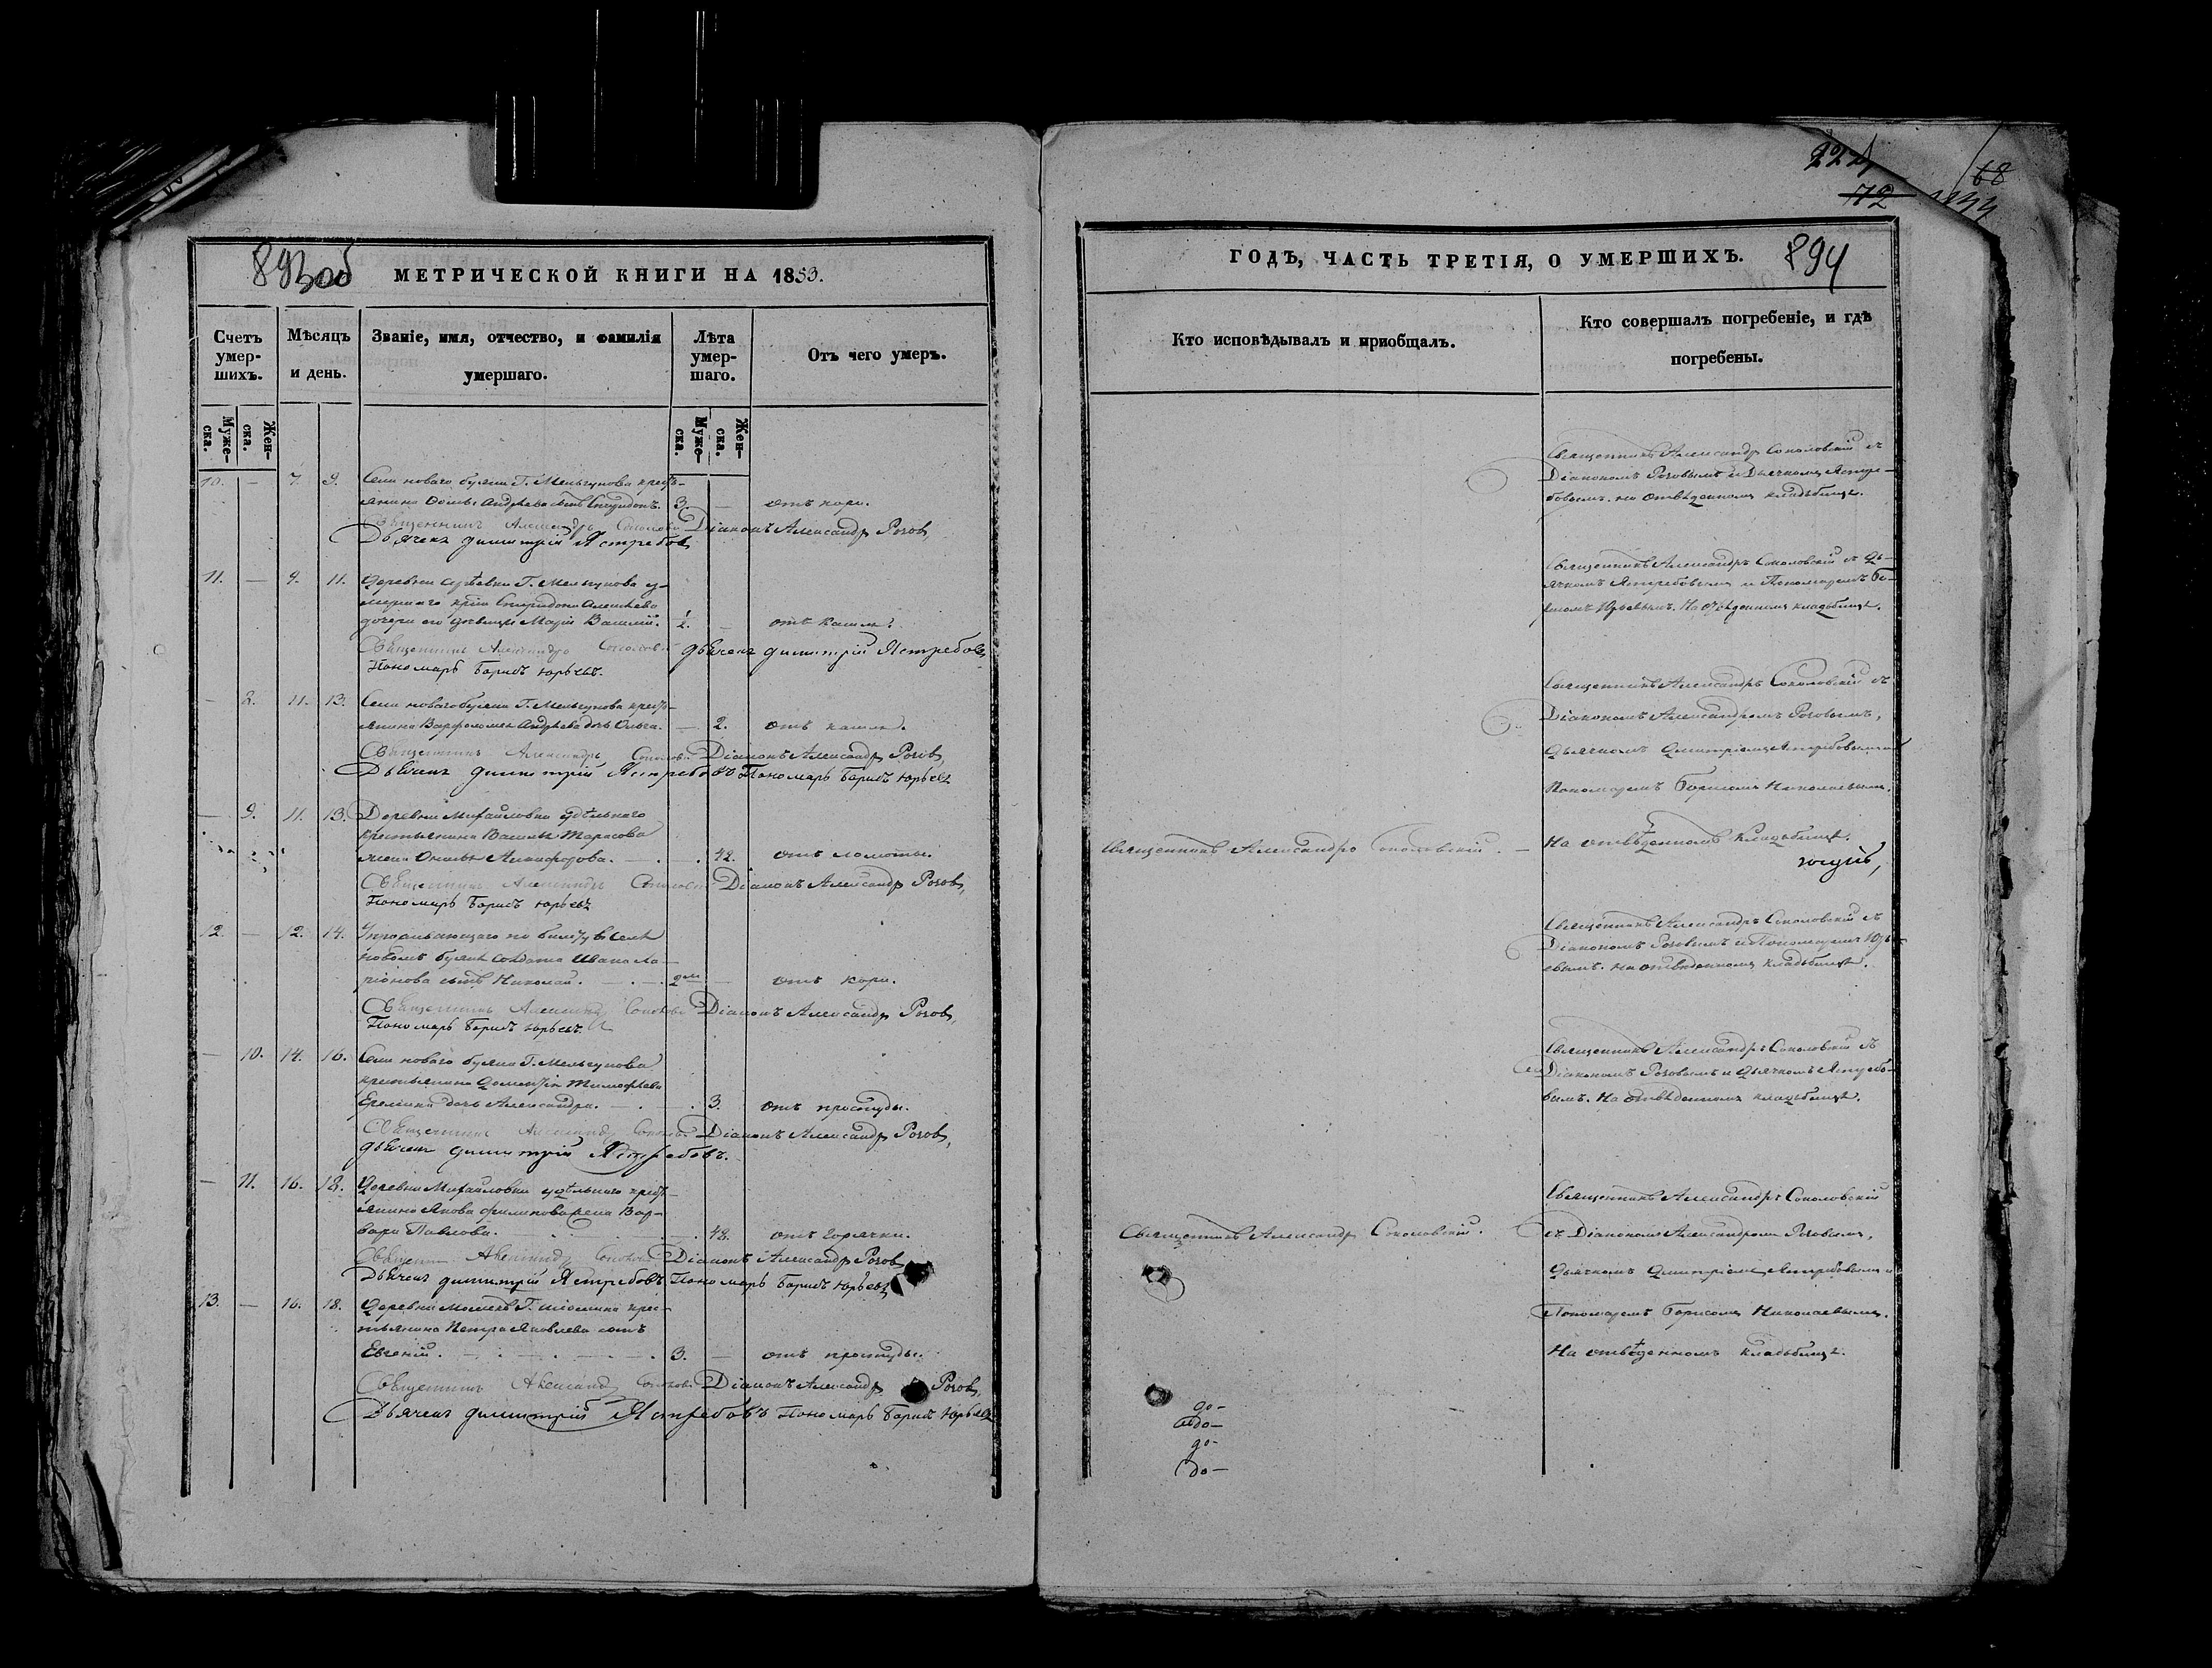 893об
МЕТРИЧЕСКОЙ КНИГИ НА 1853.
Счетъ умер-шихъ.
Мѣсяцъ и день.
Званіе, имя, отчество, и фамилія умершаго.
Лѣта умер-шаго.
Отъ чего умеръ.
Муже-ска.
Жен-ска.
Муже-ска.
Жен-ска.
10. — 7. 9. Села новаго буяна Г. Мельгунова кресть-
янина Фомы Андреева сынъ Спиридонъ. 3. — отъ кори.
Священникъ Александръ Соколовскій Діаконъ Александръ Розовъ,
Дьячекъ Димитрій Ястребовъ
11. — 9. 11. Деревни Г. Мельгунова у-
мершаго Спиридона Алексеева
дочери его девицы Маріи Василій. 1/2. — отъ кашля.
Священникъ Александръ Соколовскій Дьячекъ Димитрій Ястребовъ
Пономарь Борисъ Юрьевъ.
— 2. 11. 13. Села новаго буяна Г. Мельгунова кресть-
янина Варфоломея Андреева дочь Ольга. — 2. отъ кашля.
Священникъ Александръ Соколовскій Діаконъ Александръ Розовъ,
Дьячекъ Димитрій Ястребовъ Пономарь Борисъ Юрьевъ
— 9. 11. 13. Деревни Михайловки удѣльнаго
крестьянина Василья Тарасова
жена Никифорова. — 42. отъ ломоты.
Священникъ Александръ Соколовскій Діаконъ Александръ Розовъ,
Пономарь Борисъ Юрьевъ
12. — 12. 14. Проживающаго по билету въ селѣ
новомъ буянѣ солдата Ивана Ла-
ріонова сынъ Николай. 2 м — отъ кори.
Священникъ Александръ Соколовскій Діаконъ Александръ Розовъ,
Пономарь Борисъ Юрьевъ.
— 10. 14. 16. Села новаго буяна Г. Мельгунова
крестьянина Дементія Тимофѣева
Еремина дочь Александра. 3. отъ простуды.
Священникъ Александръ Соколовскій Діаконъ Александръ Розовъ,
Дьячекъ Димитрій Ястребовъ.
— 11. 16. 18. Деревни Михайловки удѣльнаго кресть-
янина Якова Филипова жена Вар-
вара Павлова. 48. отъ горячки.
Священникъ Александръ Соколовскій Діаконъ Александръ Розовъ
Дьячекъ Димитрій Ястребовъ Пономарь Борисъ Юрьевъ
13. — 16. 18. Деревни Г. крес-
тьянина Петра Яковлева сынъ
Евгеній. 3. — отъ простуды.
Священникъ Александръ Соколовскій Діаконъ Александръ Розовъ,
Дьячекъ Димитрій Ястребовъ Пономарь Борисъ Юрьевъ
224
72
68
894
ГОДЪ, ЧАСТЬ ТРЕТІЯ, О УМЕРШИХЪ.
Кто исповѣдывалъ и приобщалъ.
Кто совершалъ погребеніе, и гдѣ погребены.
Священникъ Александръ Соколовскій съ
Діакономъ Розовымъ и Дьячкомъ Ястре-
бовымъ. на отвѣденномъ кладбище.
Священникъ Александръ Соколовскій съ Дь-
ячкомъ Ястребовымъ и Пономаремъ Бо-
рисомъ Юрьевымъ. На отвѣденномъ кладбище.
Священникъ Александръ Соколовскій съ
Діакономъ Александромъ Розовымъ,
Дьячкомъ Димитріемъ Ястребовымъ и
Пономаремъ Борисомъ Николаевымъ.
Священникъ Александръ Соколовскій. — На отвѣденномъ кладбище.
Священникъ Александръ Соколовскій съ
Діакономъ Розовымъ и Пономаремъ Юрь-
евымъ. на отвѣденномъ кладбище.
Священникъ Александръ Соколовскій съ
Діакономъ Розовымъ и Дьячкомъ Ястребо-
вымъ. На отвѣденномъ кладбище.
Священникъ Александръ Соколовскій
Священникъ Александръ Соколовскій. съ Діакономъ Александромъ Розовымъ,
Дьячкомъ Димитріемъ Ястребовымъ и
Пономаремъ Борисомъ Николаевымъ.
На отвѣденномъ кладбище.